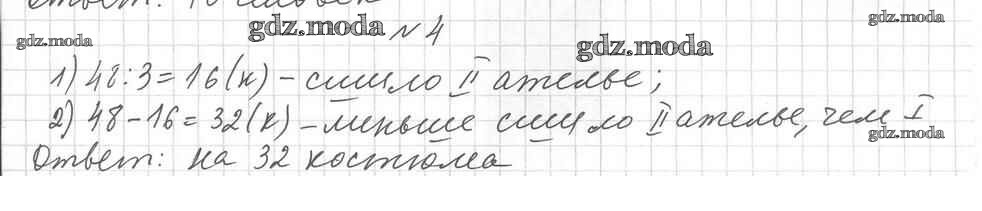 Ответ: 10 человек
gdz.moda
gdz.moda
gdz.moda
№ 4
gdz.moda
1) 48:3=16(к) – сшило II ателье;
2) 48-16=32(к) – меньше сшило II ателье, чем I
gdz.moda
Ответ: на 32 костюма